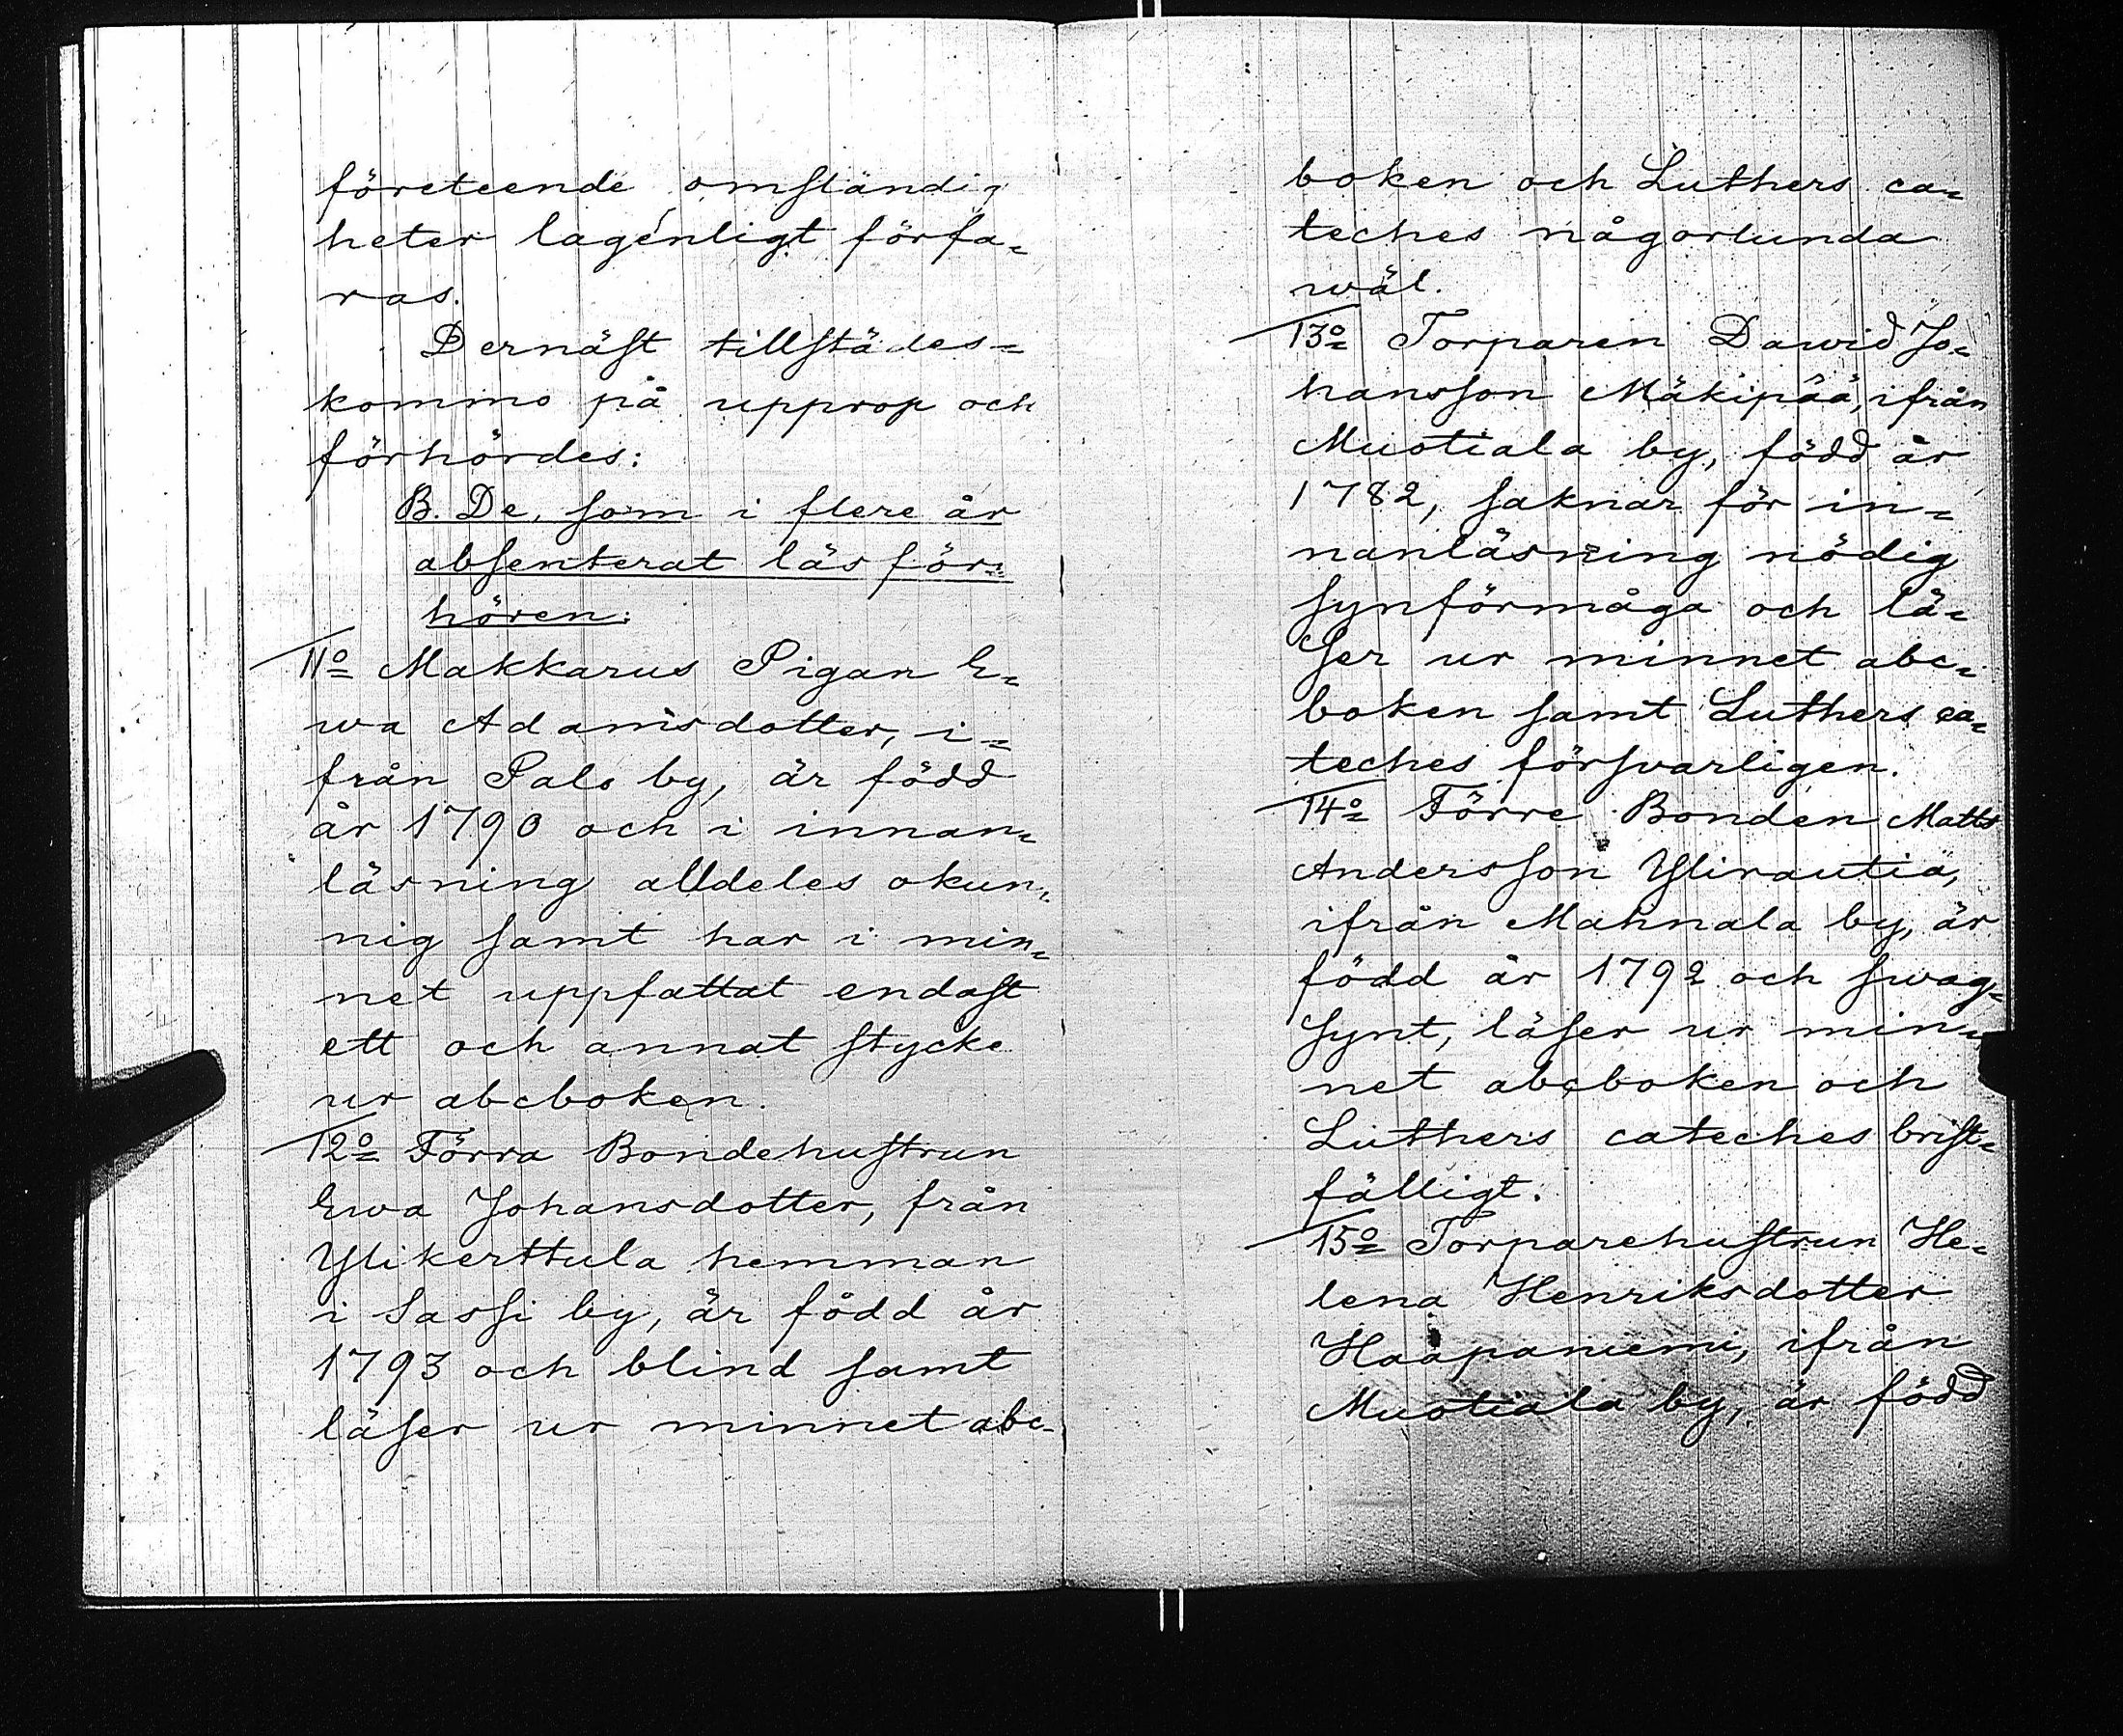 företeende omständig
heter lagenligt förfa-
ras.
Dernäst tillstädes-
kommo på upprop och
förhördes:
B. De, som i flere år
absenterat läsför-
hören:
11o Makkarus Pigan E-
wa Adamsdotter, i-
från Palo by, är född
år 1790 och i innan-
läsning alldeles okun-
nig samt har i min-
net uppfattat endast
ett och annat stycke
ur abcboken.
12o Förra Bondehustrun
Ewa Johansdotter, från
Ylikerttula hemman
i Sassi by, är född år
1793 och blind samt
läser ur minnet abc-
boken och Luthers ca-
teches någorlunda
wäl.
13o Torparen Dawid Jo-
hansson Mäkipää, ifrån
Muotiala by, född år
1782, saknar för in-
nanläsning nödig
synförmåga och lä-
ser ur minnet abc-
boken samt Luthers ca-
teches försvarligen.
14o Förre Bonden Matts
Andersson Ylirautia,
ifrån Mahnala by, är
född år 1792 och swag-
synt, läser ur min-
net abcboken och
Luthers cateches brist-
fälligt.
15o Torparehustrun He-
lena Henriksdotter
Haapaniemi, ifrån
Muotiala by, är född